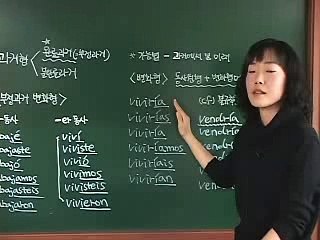 과거형
완료과거 (부정과거)
불완료과거
부정과거 변화형>
동사
-er동사
bajé viví
bajaste viviste
bajó vivió
bajamos vivimos
bajasteis vivisteis
bajaron vivieron
* 가능형 - 과거에서 본 미래
<변화형> 동사원형 + 변화형
viviría
vivirías
viviría
viviríamos
viviríais
vivirían
(cf)
vendría